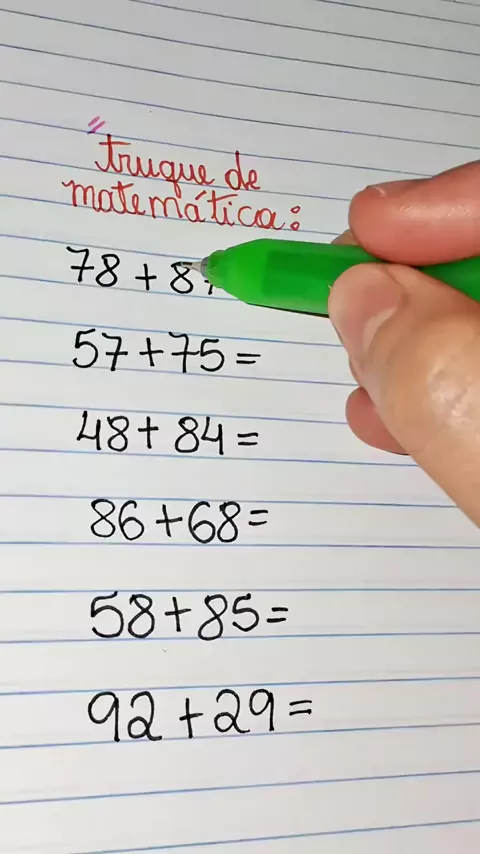 truque de
matemática:
78 + 8
57 + 75 =
48 + 84 =
86 + 68 =
58 + 85 =
92 + 29 =